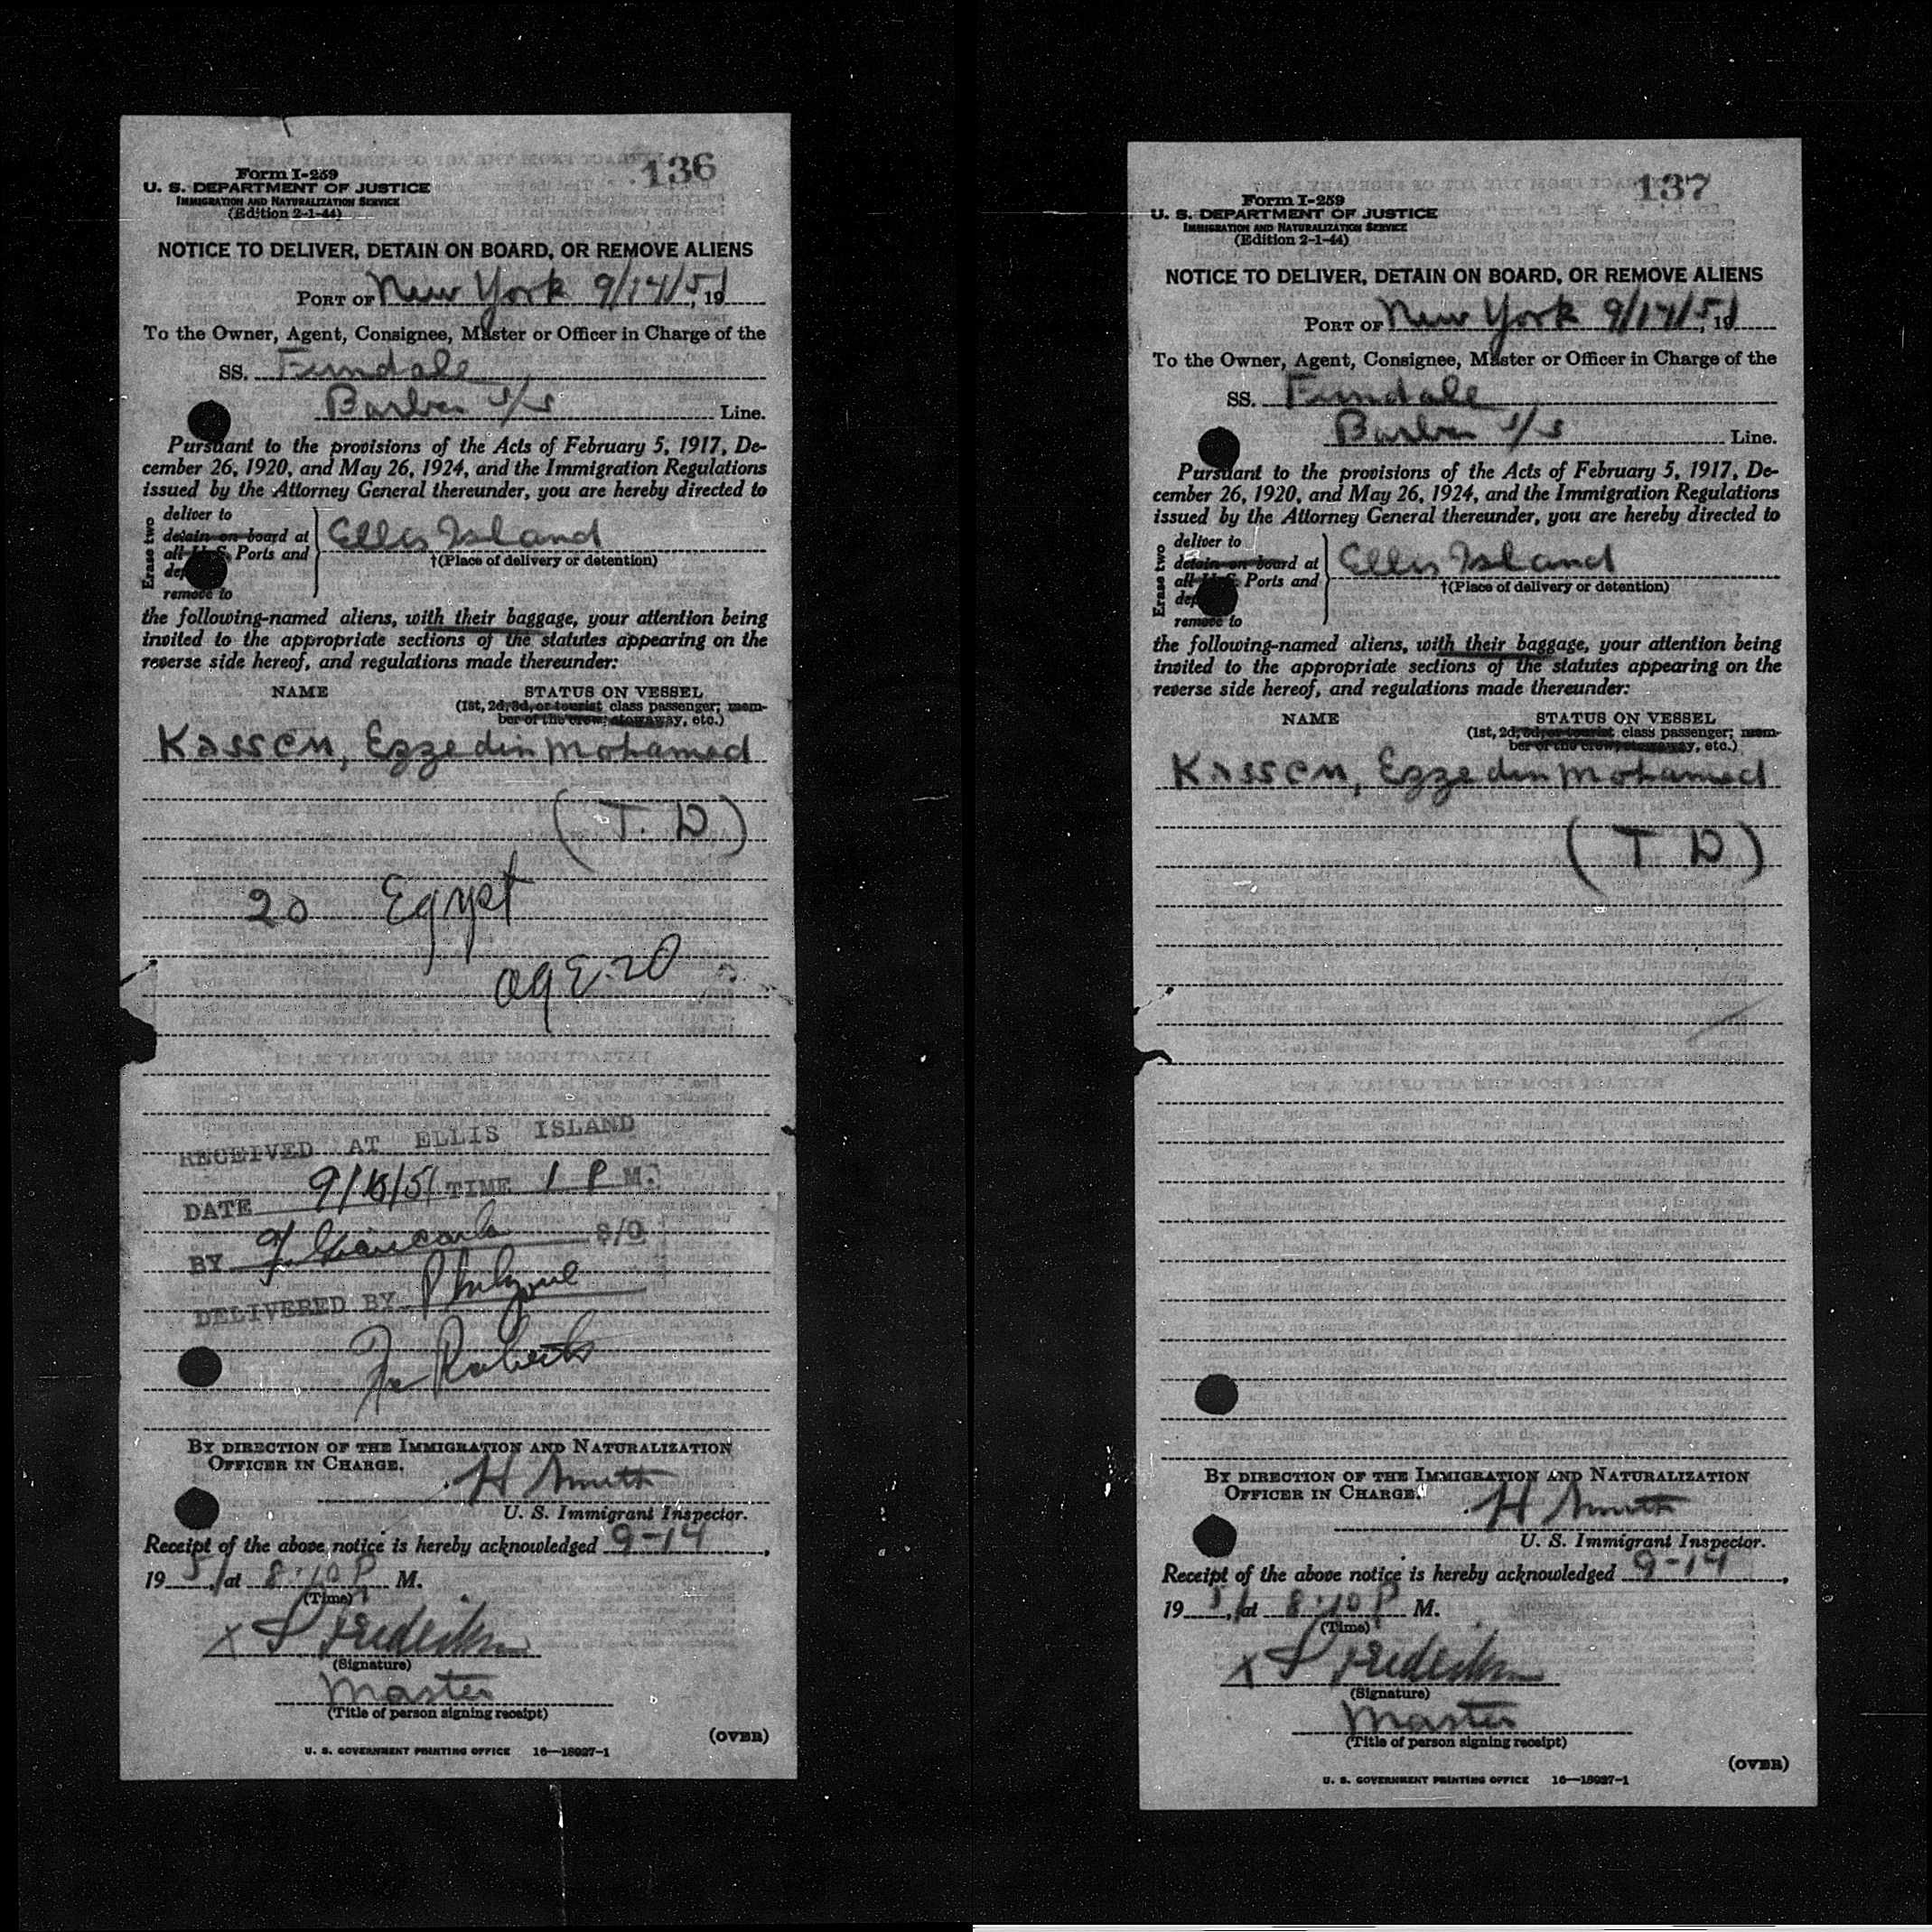 136
Form I-259
U. S. DEPARTMENT OF JUSTICE
IMMIGRATION AND NATURALIZATION SERVICE
(Edition 2-1-44)
NOTICE TO DELIVER, DETAIN ON BOARD, OR REMOVE ALIENS
PORT OF New York 9/14/51, 19
To the Owner, Agent, Consignee, Master or Officer in Charge of the
SS. Ferndale
Barber S/S Line.
Pursuant to the provisions of the Acts of February 5, 1917, De-
cember 26, 1920, and May 26, 1924, and the Immigration Regulations
issued by the Attorney General thereunder, you are hereby directed to
Erase two
deliver to
detain on board at
all U.S. Ports and
remove to
Ellis Island
†(Place of delivery or detention)
the following-named aliens, with their baggage, your attention being
invited to the appropriate sections of the statutes appearing on the
reverse side hereof, and regulations made thereunder:
NAME STATUS ON VESSEL
(1st, 2d, 3d, or tourist class passenger; mem-
ber of the crew, stowaway, etc.)
Kassem, Ezzedin Mohamed
(T. D)
20 Egypt
age 20
RECEIVED AT ELLIS ISLAND
DATE 9/15/51 TIME 1 P M.
BY S/O
DELIVERED BY
Roberts
BY DIRECTION OF THE IMMIGRATION AND NATURALIZATION
OFFICER IN CHARGE.
H Smith
U. S. Immigrant Inspector.
Receipt of the above notice is hereby acknowledged 9-14,
1951, at 8:10 P M.
(Time)
x Frederiksen
(Signature)
Master
(Title of person signing receipt)
(OVER)
U. S. GOVERNMENT PRINTING OFFICE 16—18927-1
137
Form I-259
U. S. DEPARTMENT OF JUSTICE
IMMIGRATION AND NATURALIZATION SERVICE
(Edition 2-1-44)
NOTICE TO DELIVER, DETAIN ON BOARD, OR REMOVE ALIENS
PORT OF New York 9/14/51, 19
To the Owner, Agent, Consignee, Master or Officer in Charge of the
SS. Ferndale
Barber S/S Line.
Pursuant to the provisions of the Acts of February 5, 1917, De-
cember 26, 1920, and May 26, 1924, and the Immigration Regulations
issued by the Attorney General thereunder, you are hereby directed to
Erase two
deliver to
detain on board at
all U.S. Ports and
remove to
Ellis Island
†(Place of delivery or detention)
the following-named aliens, with their baggage, your attention being
invited to the appropriate sections of the statutes appearing on the
reverse side hereof, and regulations made thereunder:
NAME STATUS ON VESSEL
(1st, 2d, 3d, or tourist class passenger; mem-
ber of the crew, stowaway, etc.)
Kassem, Ezzedin Mohamed
(T D)
BY DIRECTION OF THE IMMIGRATION AND NATURALIZATION
OFFICER IN CHARGE.
H Smith
U. S. Immigrant Inspector.
Receipt of the above notice is hereby acknowledged 9-14,
1951, at 8:10 P M.
(Time)
x Frederiksen
(Signature)
Master
(Title of person signing receipt)
(OVER)
U. S. GOVERNMENT PRINTING OFFICE 16—18927-1